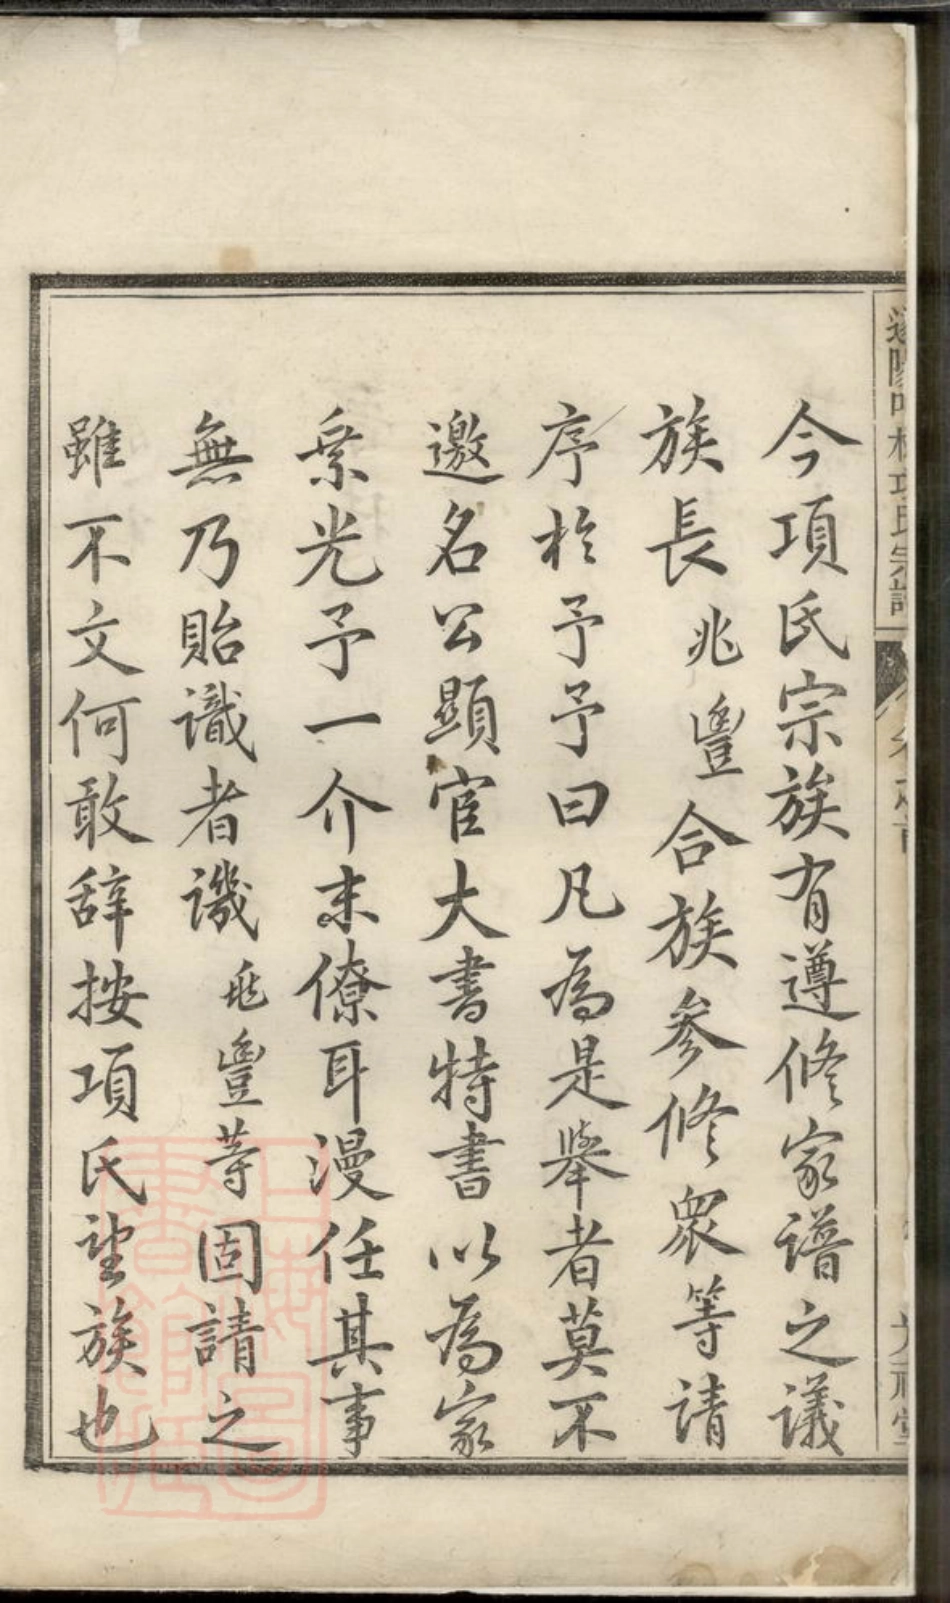 項氏宗譜
今項氏宗族有遵修家譜之議
族長兆豐合族参修衆等請
序於予予曰凡為是舉者莫不
邀名公顯宦大書特書以為家
乗光予一介末僚耳漫任其事
無乃貽識者譏兆豐等固請之
雖不文何敢辞按項氏望族也
上海圖書館藏